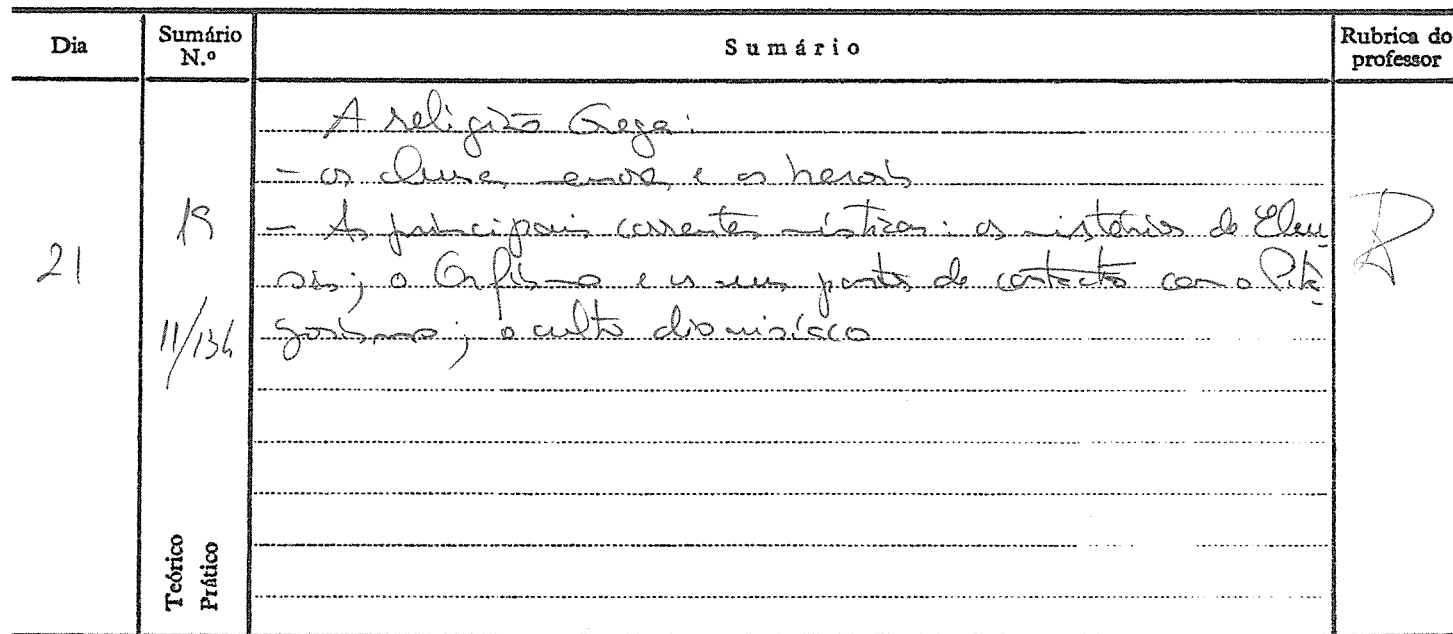 Dia
Sumário N.º
Sumário
Rubrica do professor
21
19
11/13h
A religião Grega:
- os deuses e os heróis
- As principais correntes místicas: os mistérios de Elêu
sis; o Orfismo e os seus pontos de contacto com o Pitá
gorismo; o culto dionisíaco
Teórico
Prático